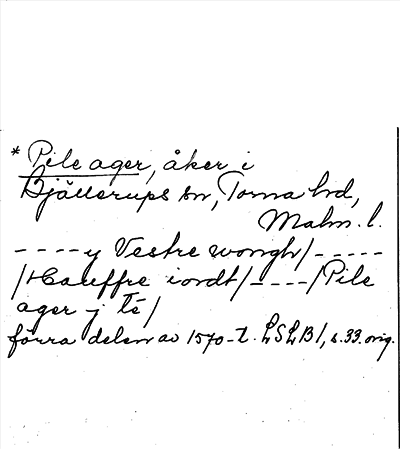 * Pile ager, åker i
Bjällerups sn, Torna hrd,
Malm. l.
- - - - y Vestre wongh/- - - - -
/Hauffre iordt/- - - -/Pile
ager j té/
förra delen av 1570-t. LSLB1, s. 33. orig.